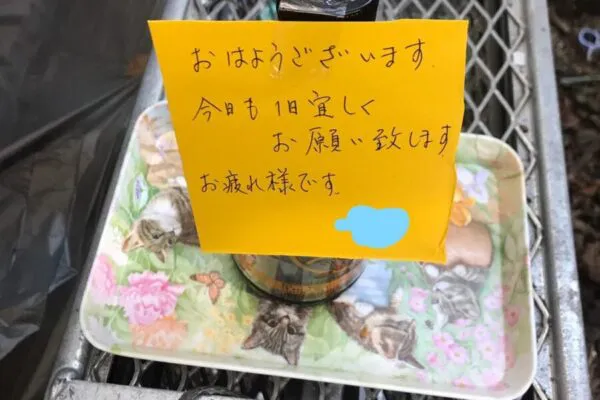 おはようございます
今日も1日宜しく
お願い致します
お疲れ様です